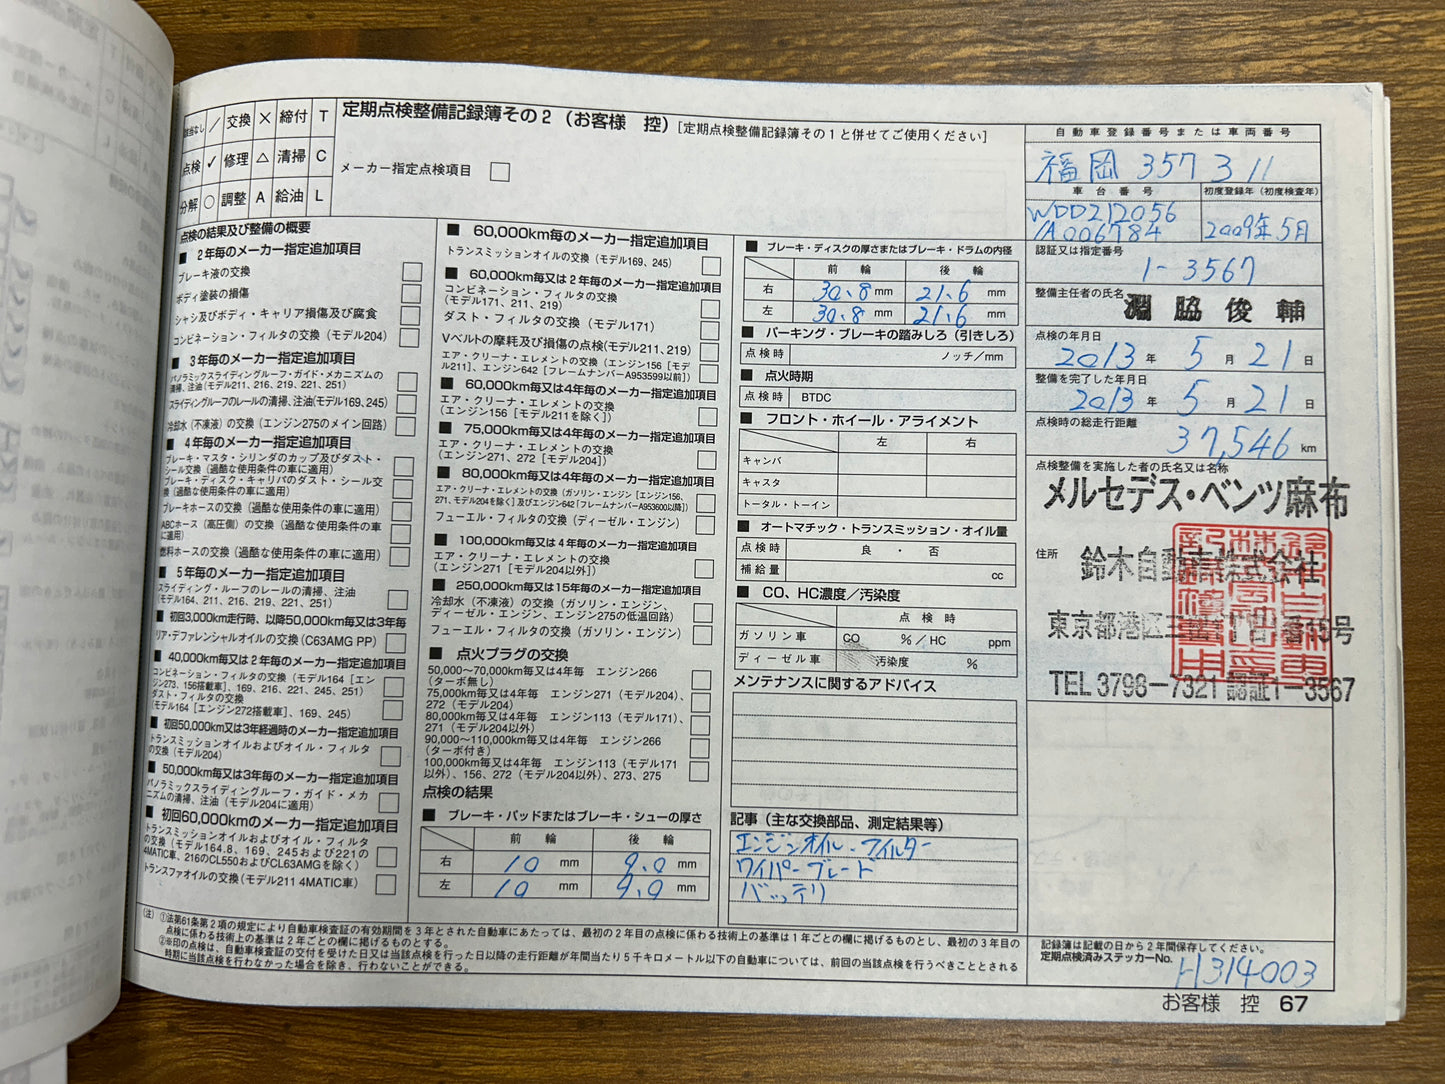 交換 ✕ 締付 T
点検 ✓ 修理 △ 清掃 C
分解 ○ 調整 A 給油 L
定期点検整備記録簿その2（お客様 控）[定期点検整備記録簿その1と併せてご使用ください]
メーカー指定点検項目
点検の結果及び整備の概要
■ 2年毎のメーカー指定追加項目
ブレーキ液の交換
ボディ塗装の損傷
シャシ及びボディ・キャリア損傷及び腐食
コンビネーション・フィルタの交換（モデル204）
■ 3年毎のメーカー指定追加項目
パノラミックスライディングルーフ・ガイド・メカニズムの
清掃、注油（モデル211、216、219、221、251）
スライディングルーフのレールの清掃、注油（モデル169、245）
冷却水（不凍液）の交換（エンジン275のメイン回路）
■ 4年毎のメーカー指定追加項目
ブレーキ・マスタ・シリンダのカップ及びダスト・
シール交換（過酷な使用条件の車に適用）
ブレーキ・ディスク・キャリパのダスト・シール交
換（過酷な使用条件の車に適用）
ブレーキホースの交換（過酷な使用条件の車に適用）
ABCホース（高圧側）の交換（過酷な使用条件の車
に適用）
燃料ホースの交換（過酷な使用条件の車に適用）
■ 5年毎のメーカー指定追加項目
スライディング・ルーフのレールの清掃、注油
（モデル164、211、216、219、221、251）
■ 初回3,000km走行時、以降50,000km毎又は3年毎
リア・デファレンシャルオイルの交換（C63AMG PP）
■ 40,000km毎又は2年毎のメーカー指定追加項目
コンビネーション・フィルタの交換（モデル164［エン
ジン273、156搭載車］、169、216、221、245、251）
ダスト・フィルタの交換
（モデル164［エンジン272搭載車］、169、245）
■ 初回50,000km又は3年経過時のメーカー指定追加項目
トランスミッションオイルおよびオイル・フィルタ
の交換（モデル204）
■ 50,000km毎又は3年毎のメーカー指定追加項目
パノラミックスライディングルーフ・ガイド・メカ
ニズムの清掃、注油（モデル204に適用）
■ 初回60,000kmのメーカー指定追加項目
トランスミッションオイルおよびオイル・フィルタ
の交換（モデル164.8、169、245および221の
4MATIC車、216のCL550およびCL63AMGを除く）
トランスファオイルの交換（モデル211 4MATIC車）
■ 60,000km毎のメーカー指定追加項目
トランスミッションオイルの交換（モデル169、245）
■ 60,000km毎又は2年毎のメーカー指定追加項目
コンビネーション・フィルタの交換
（モデル171、211、219）
ダスト・フィルタの交換（モデル171）
Vベルトの摩耗及び損傷の点検（モデル211、219）
エア・クリーナ・エレメントの交換（エンジン156［モデ
ル211］、エンジン642［フレームナンバーA953599以前］）
■ 60,000km毎又は4年毎のメーカー指定追加項目
エア・クリーナ・エレメントの交換
（エンジン156［モデル211を除く］）
■ 75,000km毎又は4年毎のメーカー指定追加項目
エア・クリーナ・エレメントの交換
（エンジン271、272［モデル204］）
■ 80,000km毎又は4年毎のメーカー指定追加項目
エア・クリーナ・エレメントの交換（ガソリン・エンジン［エンジン156、
271、モデル204を除く］及びエンジン642［フレームナンバーA953600以降］）
フューエル・フィルタの交換（ディーゼル・エンジン）
■ 100,000km毎又は4年毎のメーカー指定追加項目
エア・クリーナ・エレメントの交換
（エンジン271［モデル204以外］）
■ 250,000km毎又は15年毎のメーカー指定追加項目
冷却水（不凍液）の交換（ガソリン・エンジン、
ディーゼル・エンジン、エンジン275の低温回路）
フューエル・フィルタの交換（ガソリン・エンジン）
■ 点火プラグの交換
50,000〜70,000km毎又は4年毎 エンジン266
（ターボ無し）
75,000km毎又は4年毎 エンジン271（モデル204）、
272（モデル204）
80,000km毎又は4年毎 エンジン113（モデル171）、
271（モデル204以外）
90,000〜110,000km毎又は4年毎 エンジン266
（ターボ付き）
100,000km毎又は4年毎 エンジン113（モデル171
以外）、156、272（モデル204以外）、273、275
点検の結果
■ ブレーキ・パッドまたはブレーキ・シューの厚さ
前 輪 後 輪
右 10 mm 9.0 mm
左 10 mm 9.0 mm
■ ブレーキ・ディスクの厚さまたはブレーキ・ドラムの内径
前 輪 後 輪
右 30.8 mm 21.6 mm
左 30.8 mm 21.6 mm
■ パーキング・ブレーキの踏みしろ（引きしろ）
点検時 ノッチ/mm
■ 点火時期
点検時 BTDC
■ フロント・ホイール・アライメント
左 右
キャンバ
キャスタ
トータル・トーイン
■ オートマチック・トランスミッション・オイル量
点検時 良 ・ 否
補給量 cc
■ CO、HC濃度／汚染度
点 検 時
ガソリン車 CO %／HC ppm
ディーゼル車 汚染度 %
メンテナンスに関するアドバイス
記事（主な交換部品、測定結果等）
エンジンオイル・フィルター
ワイパーブレード
バッテリ
自動車登録番号または車両番号
福岡 357 3 11
車台番号 初度登録年（初度検査年）
WDD212056
1A006784 2009年5月
認証又は指定番号
1-3567
整備主任者の氏名 淵脇 俊輔
点検の年月日
2013 年 5 月 21 日
整備を完了した年月日
2013 年 5 月 21 日
点検時の総走行距離
37,546 km
点検整備を実施した者の氏名又は名称
メルセデス・ベンツ麻布
住所 鈴木自動車株式会社
東京都港区三
号
TEL 3798-7321 認証1-3567
（注）①法第61条第2項の規定により自動車検査証の有効期間を3年とされた自動車にあたっては、最初の2年目の点検に係わる技術上の基準は1年ごとの欄に掲げるものとし、最初の3年目の
点検に係わる技術上の基準は2年ごとの欄に掲げるものとする。
②※印の点検は、自動車検査証の交付を受けた日又は当該点検を行った日以降の走行距離が年間当たり5千キロメートル以下の自動車については、前回の当該点検を行うべきこととされる
時期に当該点検を行わなかった場合を除き、行わないことができる。
記録簿は記載の日から2年間保存してください。
定期点検済みステッカーNo. H314003
お客様 控 67